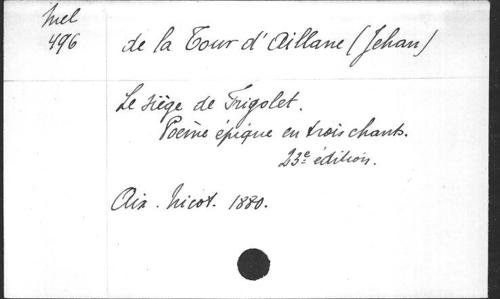 Mel
496
de la Tour d'Aillane (Jehan)
Le siège de Frigolet.
Poème épique en trois chants.
23e édition.
Aix. Nicot. 1880.